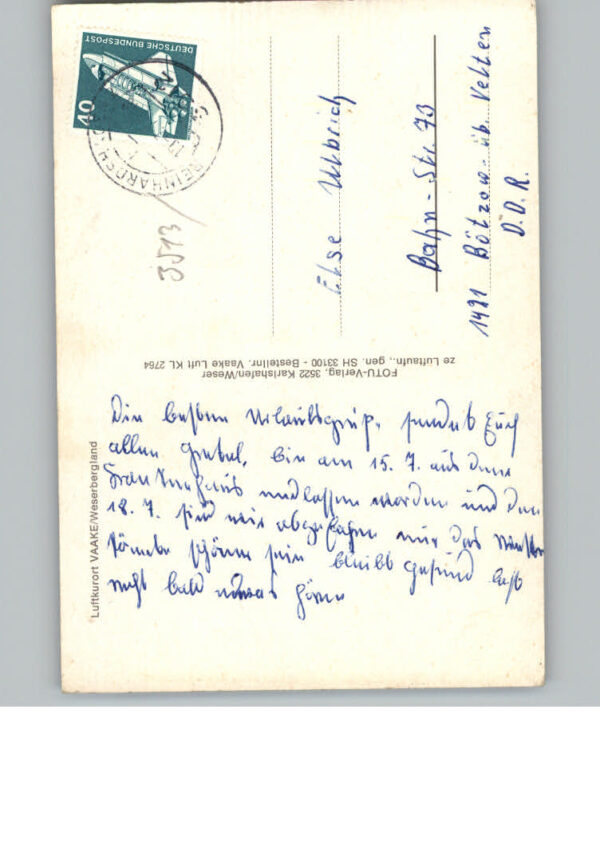 DEUTSCHE BUNDESPOST
40
REINHARDSH
3513
Else Ulbrich
Bahn-Str. 73
1421 Bötzow - üb. Velten
D.D.R.
FOTU-Verlag, 3522 Karlshafen/Weser
ze Luftaufn., gen. SH 33100 - Bestellnr. Vaake Luft KL 2764
Luftkurort VAAKE/Weserbergland
Die besten Urlaubsgrüße, sendet Euch
allen bin am 15. 7. aus dem
Krankenhaus entlassen worden und den
18. 7. sind wir abgefahren nur das Wetter
könnte schöner sein bleibt gesund laßt
recht bald etwas hören